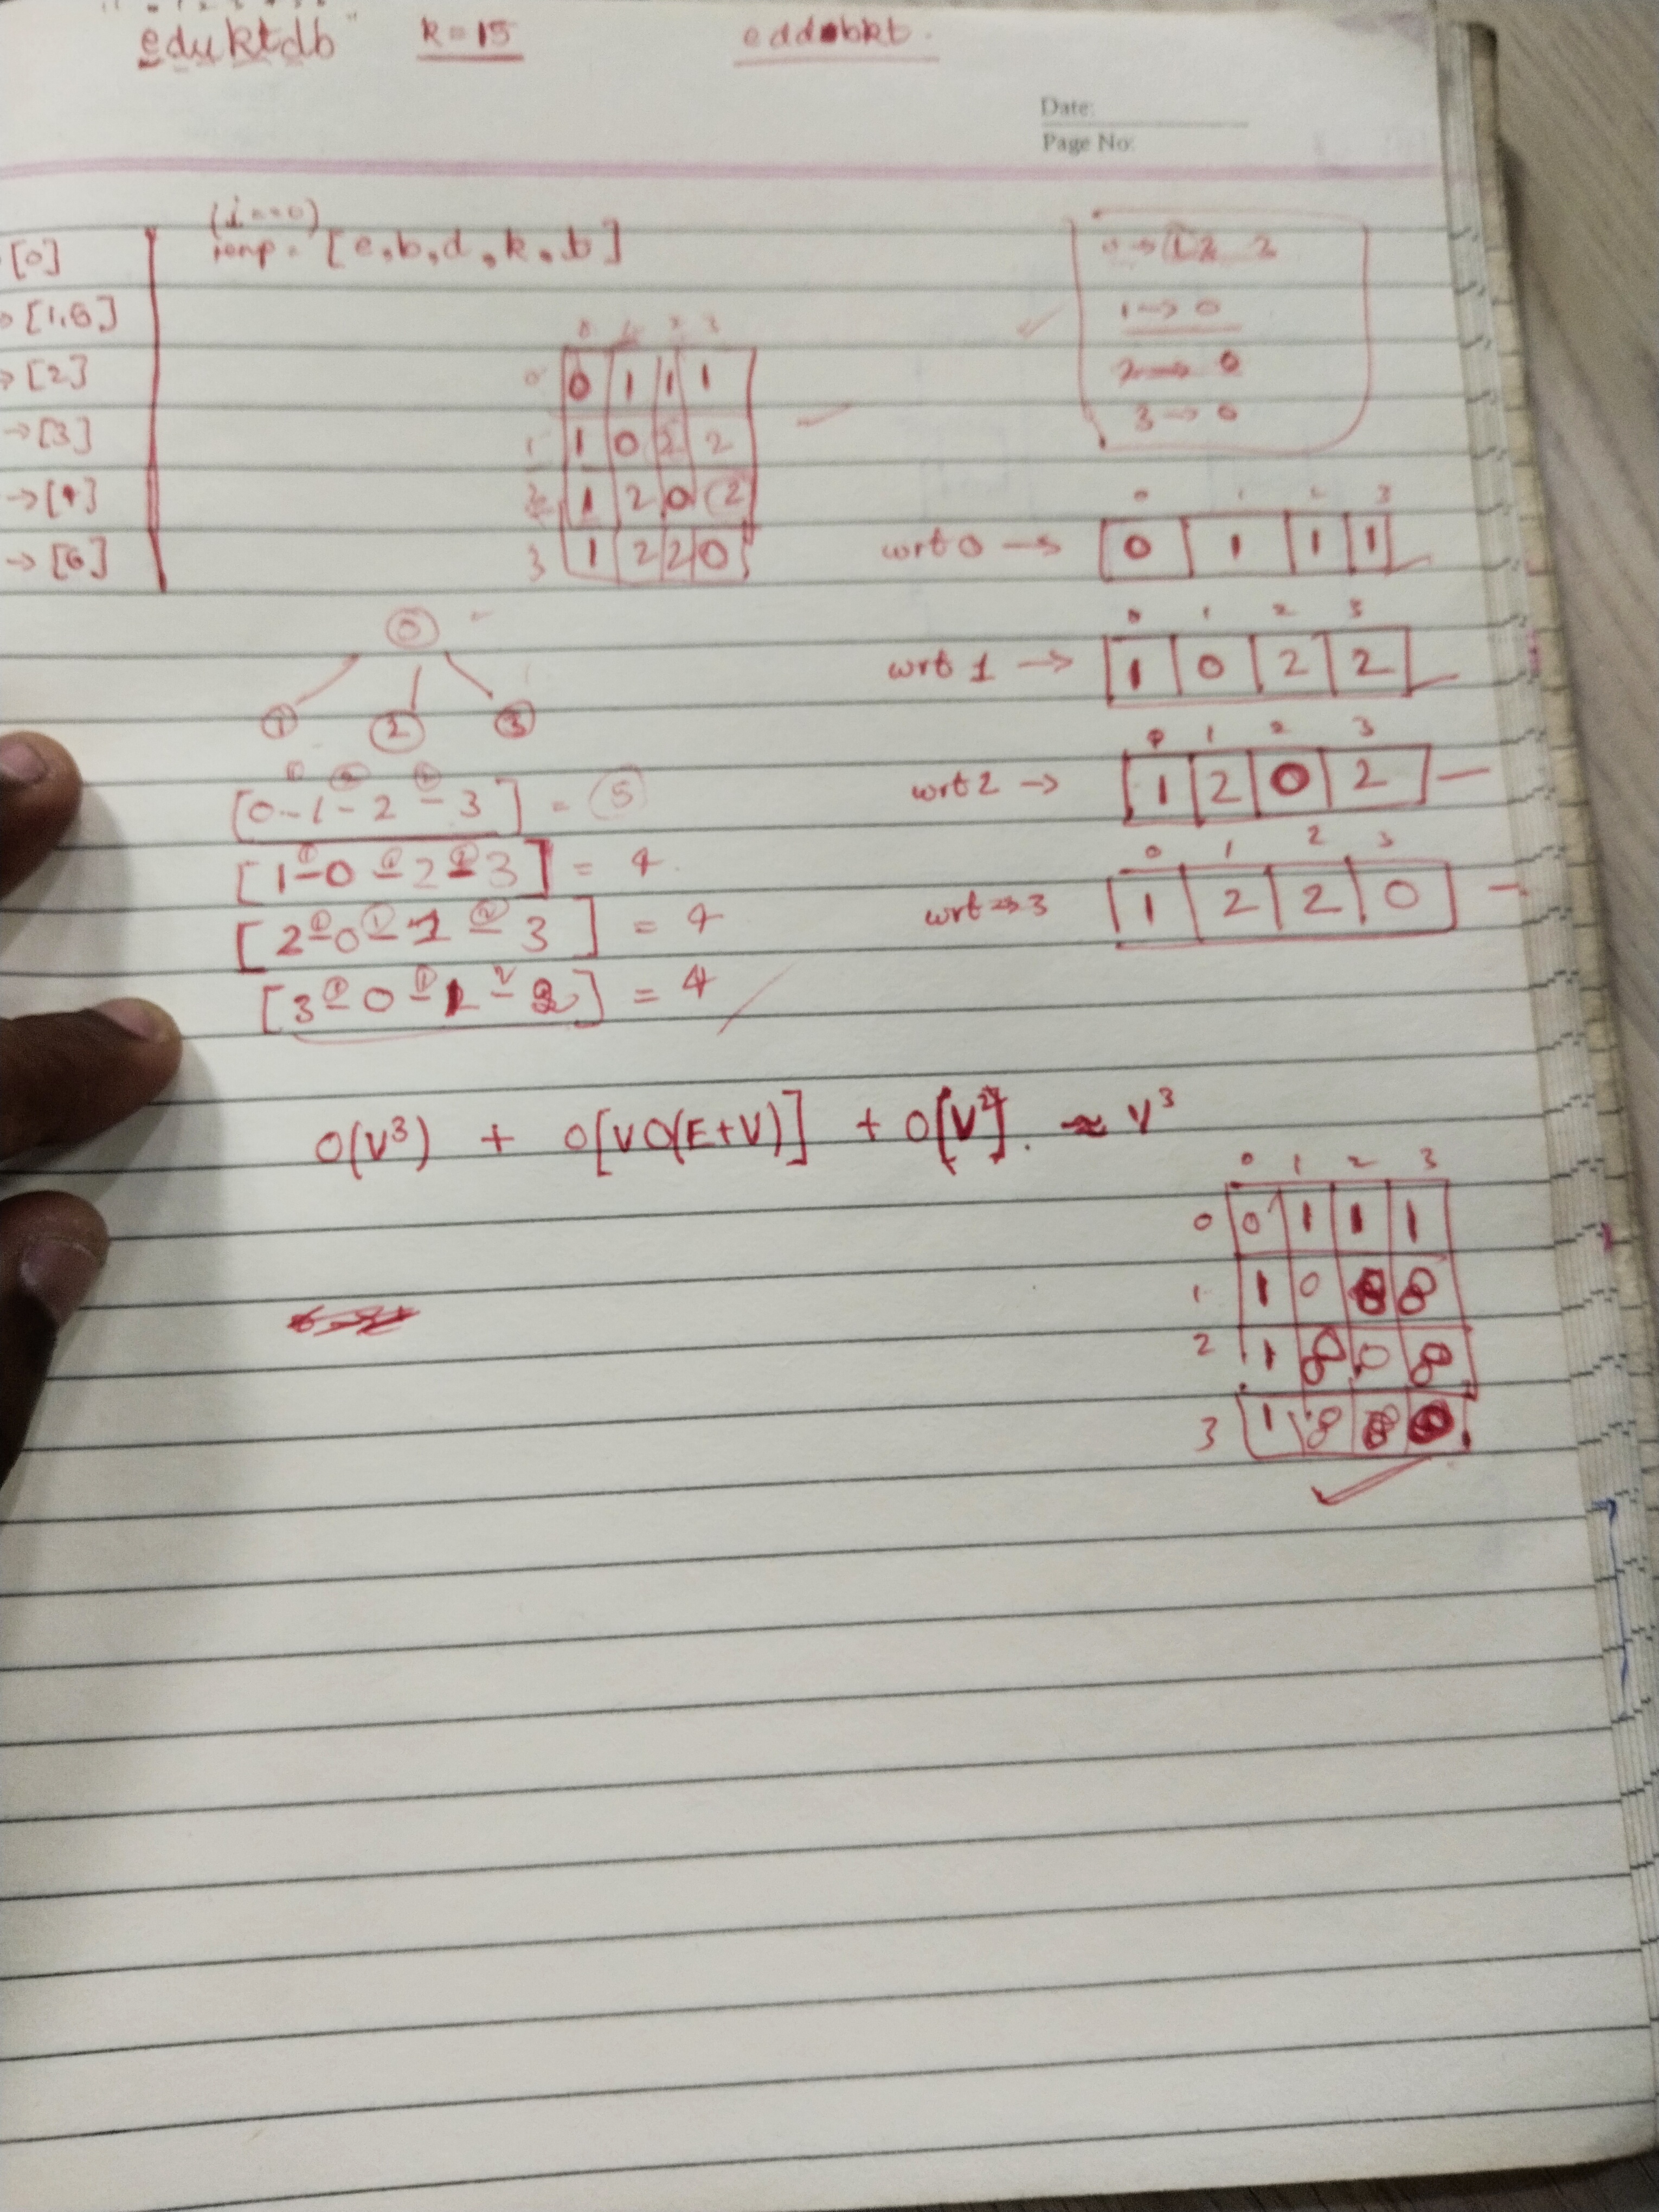 eduktdb k=15
Date:
Page No:
[0]
→ [1,5]
→ [2]
→ [3]
→ [4]
→ [6]
(i==0)
temp = [e,b,d,k,t]
0 1 2 3
0 0 1 1 1
1 1 0 2 2
2 1 2 0 2
3 1 2 2 0
0 → 1 2
1 → 0
2 → 0
3 → 0
0 1 2 3
wrt 0 → 0 1 1 1
0 1 2 3
wrt 1 → 1 0 2 2
0 1 2 3
wrt 2 → 1 2 0 2
0 1 2 3
wrt → 3 1 2 2 0
0
1 2 3
[0-1-2-3] = 5
1 1 2
[1-0-2-3] = 4
1 1 2
[2-0-1-3] = 4
1 1 2
[3-0-1-2] = 4
O(V³) + O[V O(E+V)] + O[V²] ≈ V³
0 1 2 3
0 0 1 1 1
1 1 0 8 8
2 1 8 0 8
3 1 8 8